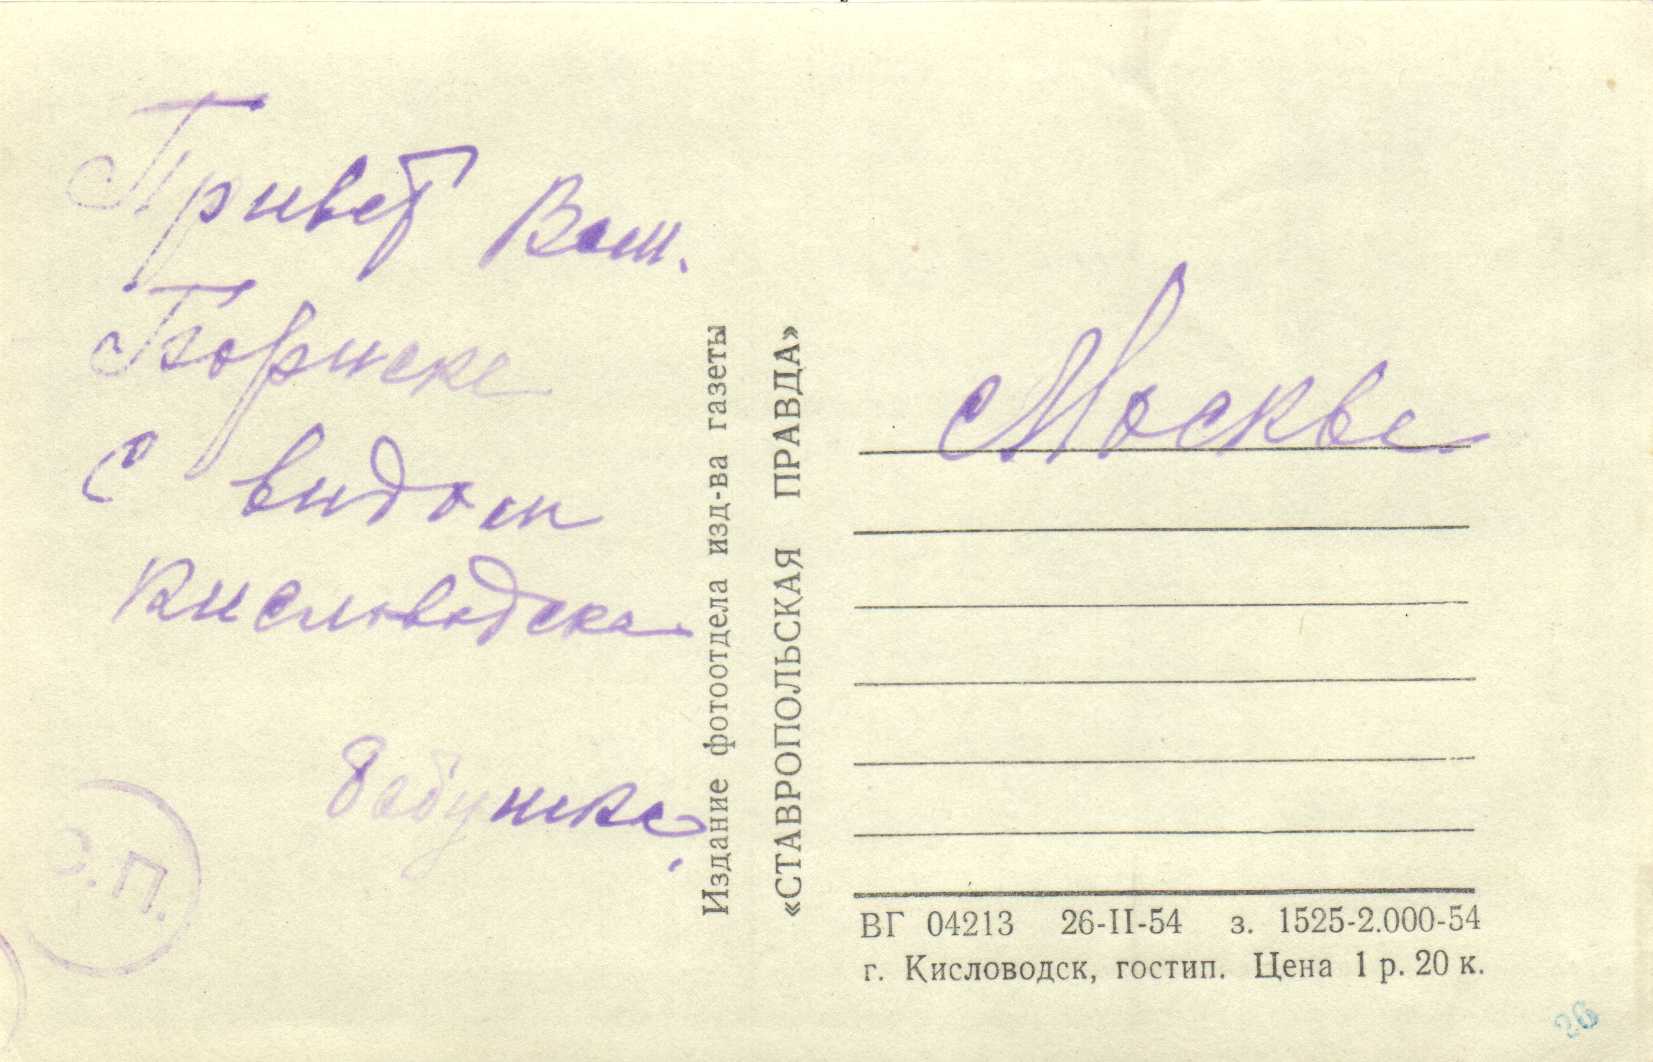 Привет Вам.
Бориске
с видом
Кисловодска
Бабушка.
О.П.
Издание фотоотдела изд-ва газеты
«СТАВРОПОЛЬСКАЯ ПРАВДА»
Москве
ВГ 04213 26-II-54 з. 1525-2.000-54
г. Кисловодск, гостип. Цена 1 р. 20 к.
26